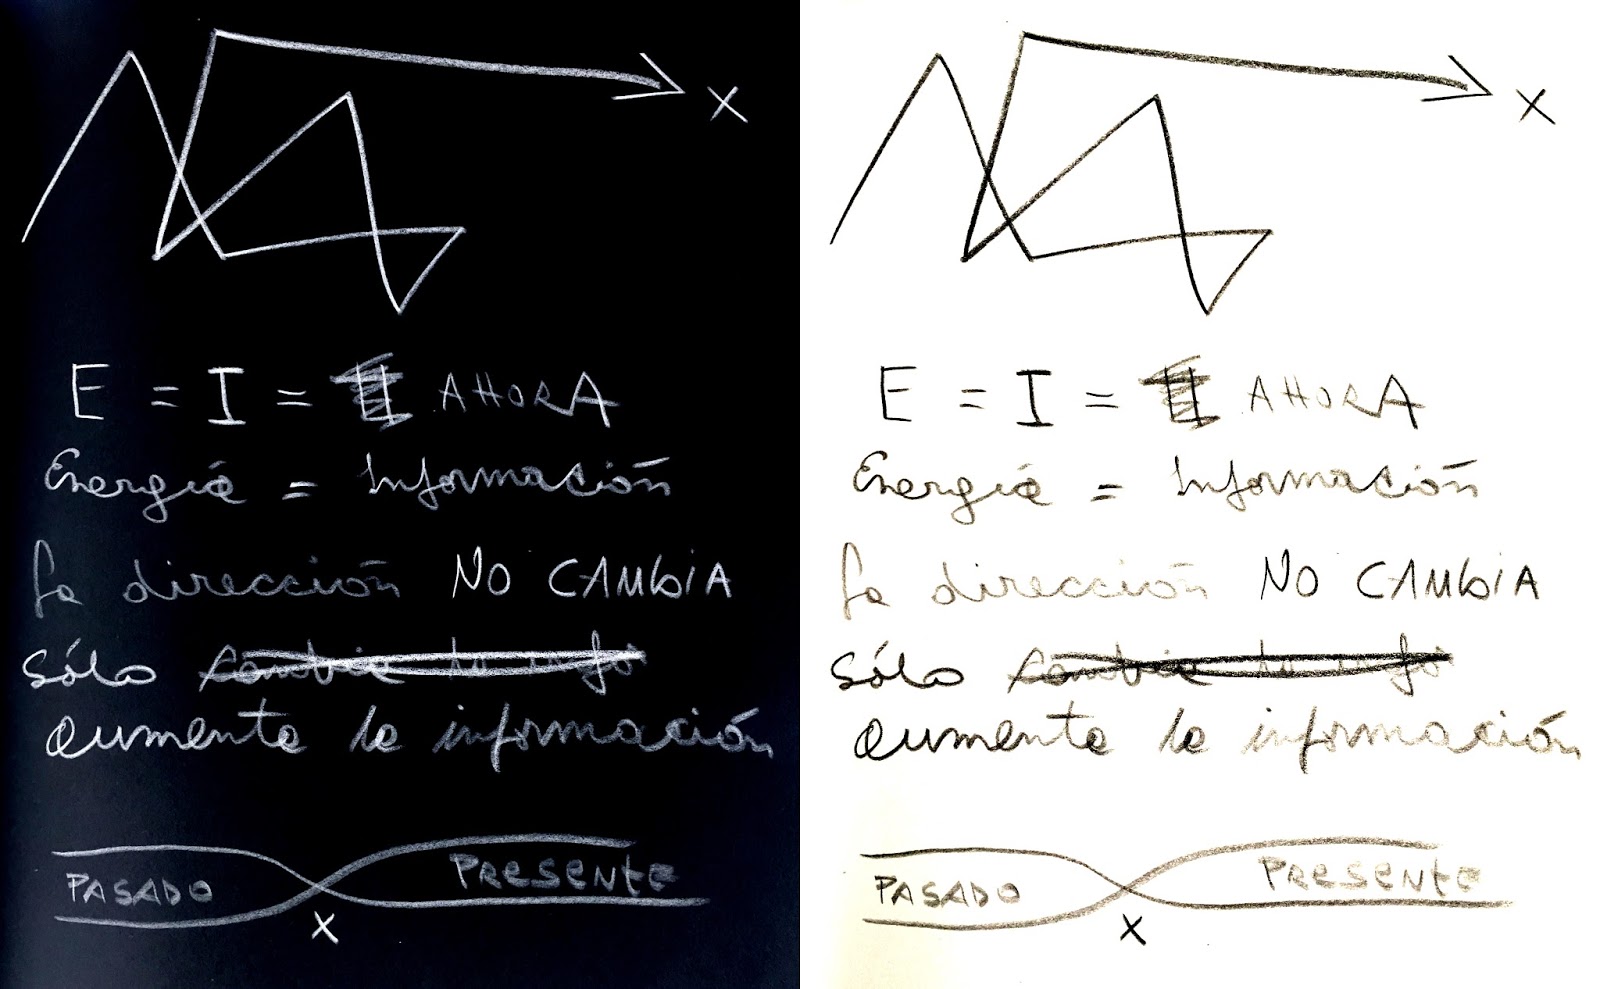 X
E = I = AHORA
Energía = Información
La dirección NO CAMbIA
Sólo
aumenta la información
PASADO PRESENtE
X
X
E = I = AHORA
Energía = Información
La dirección NO CAMbIA
Sólo
aumenta la información
PASADO PRESENtE
X